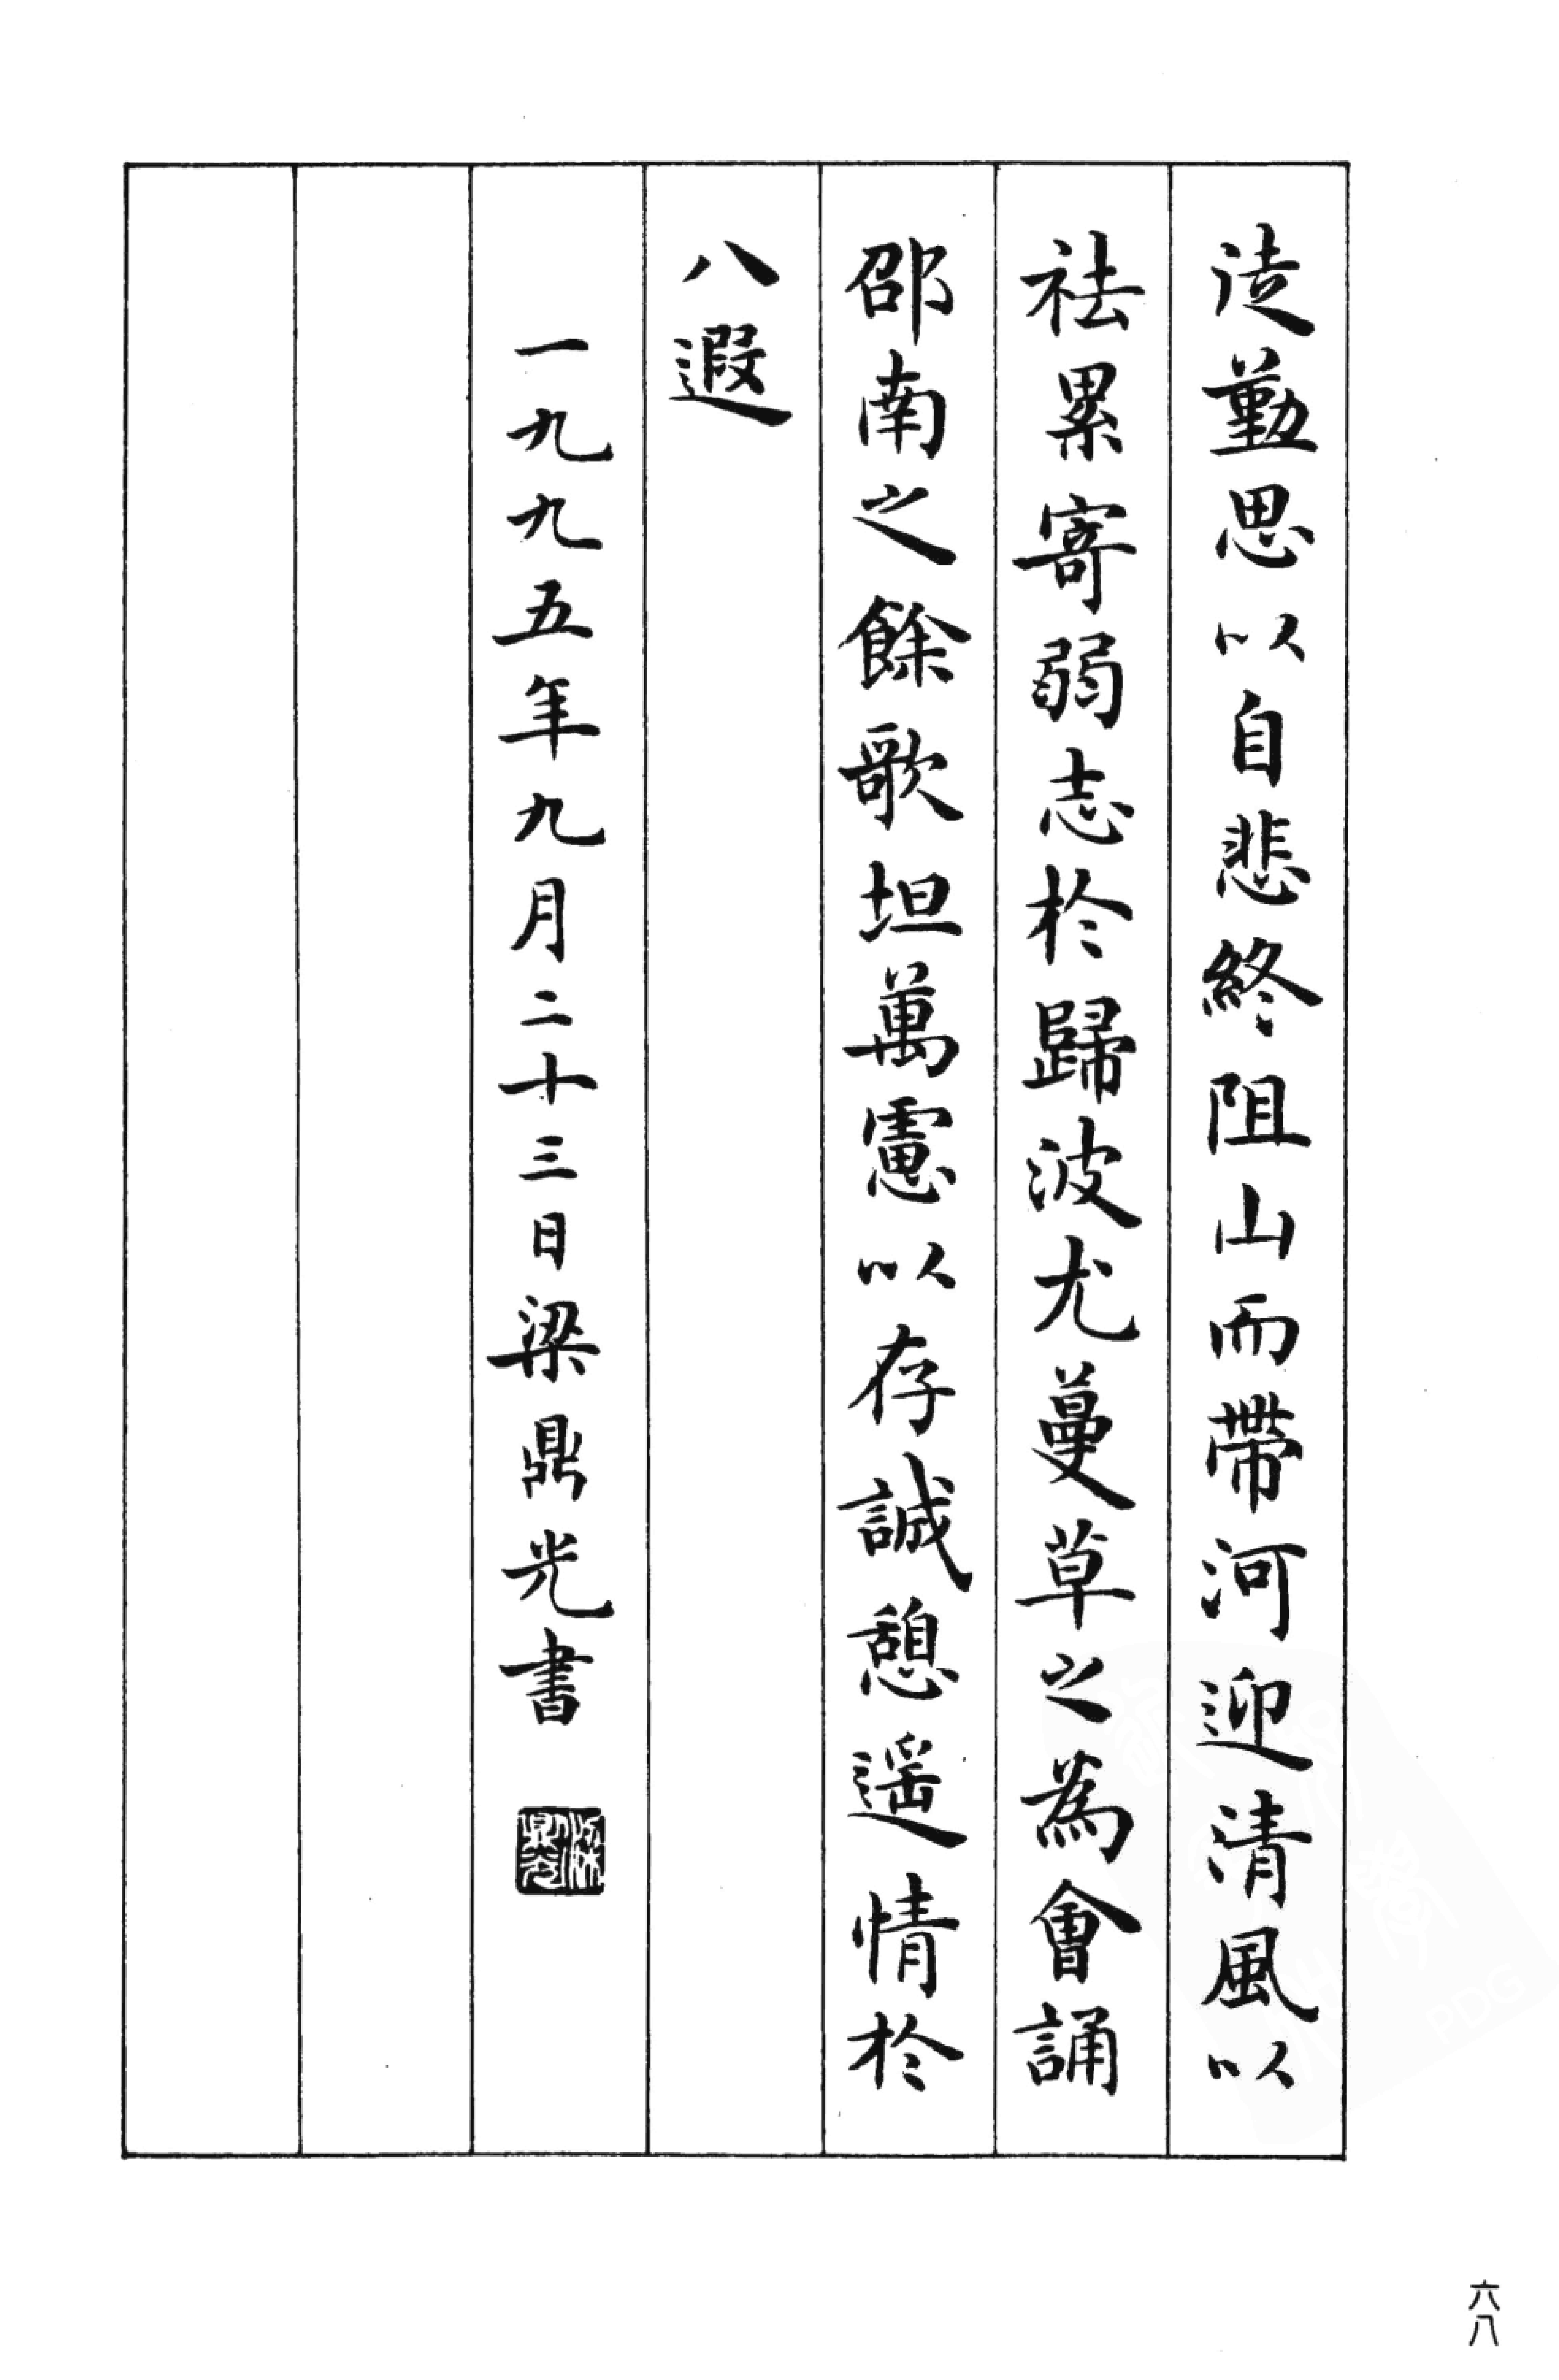 徒勤思以自悲終阻山而帶河迎清風以
祛累寄弱志於歸波尤蔓草之為會誦
邵南之餘歌坦萬慮以存誠憩遥情於
八遐
一九九五年九月二十三日梁鼎光書
梁鼎光
六八